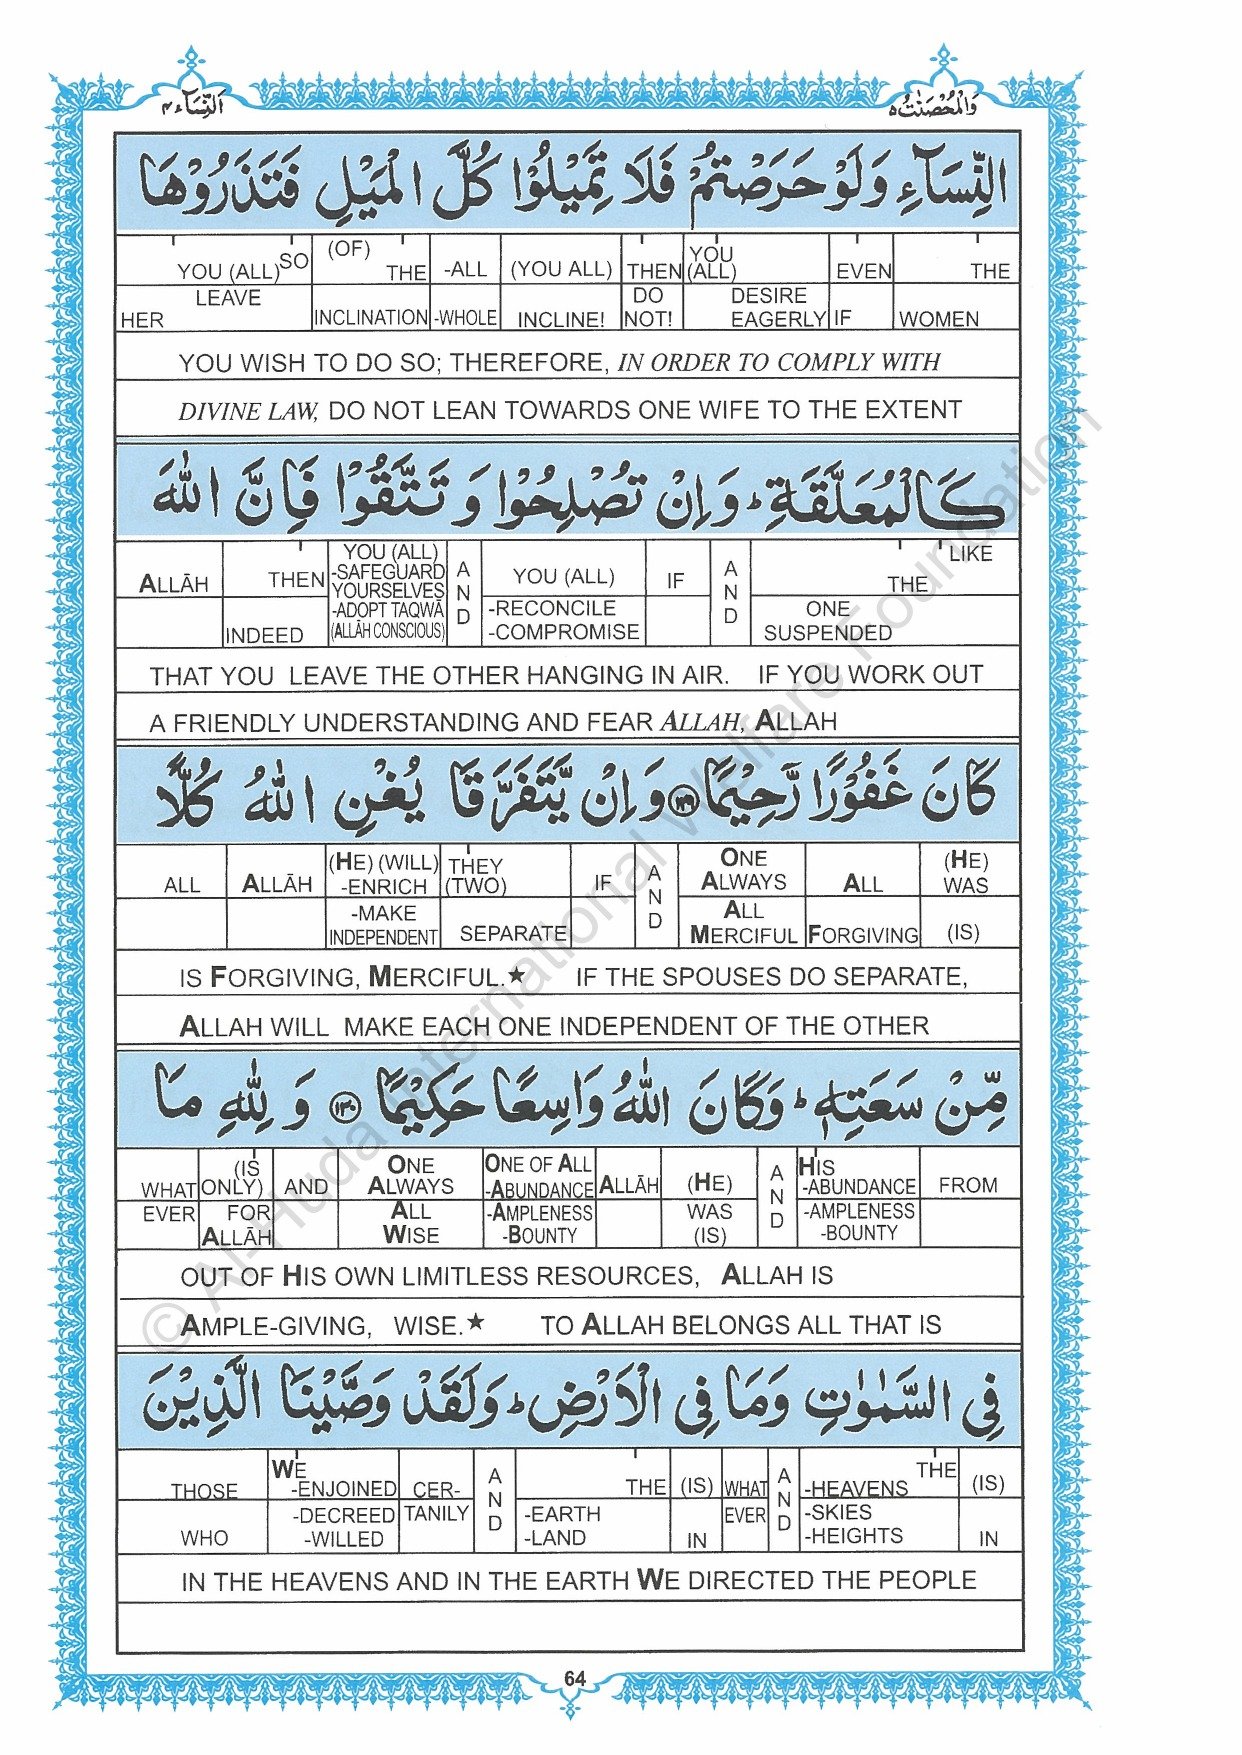 النِّسَآء ٤
وَالْمُحْصَنٰتُ ٥
النِّسَآءِ وَلَوْ حَرَصْتُمْ فَلَا تَمِيْلُوْا كُلَّ الْمَيْلِ فَتَذَرُوْهَا
YOU (ALL) SO (OF) THE -ALL (YOU ALL) THEN YOU (ALL) EVEN THE
HER LEAVE INCLINATION -WHOLE INCLINE! DO NOT! DESIRE EAGERLY IF WOMEN
YOU WISH TO DO SO; THEREFORE, IN ORDER TO COMPLY WITH
DIVINE LAW, DO NOT LEAN TOWARDS ONE WIFE TO THE EXTENT
كَالْمُعَلَّقَةِ ؕ وَاِنْ تُصْلِحُوْا وَ تَتَّقُوْا فَاِنَّ اللّٰهَ
ALLĀH THEN YOU (ALL) -SAFEGUARD YOURSELVES -ADOPT TAQWĀ (ALLĀH CONSCIOUS) AND YOU (ALL) IF AND LIKE THE
INDEED -RECONCILE -COMPROMISE ONE SUSPENDED
THAT YOU LEAVE THE OTHER HANGING IN AIR. IF YOU WORK OUT
A FRIENDLY UNDERSTANDING AND FEAR ALLAH, ALLAH
كَانَ غَفُوْرًا رَّحِيْمًا ۝١٢٩ وَاِنْ يَّتَفَرَّقَا يُغْنِ اللّٰهُ كُلًّا
ALL ALLĀH (HE) (WILL) -ENRICH THEY (TWO) IF AND ONE ALWAYS ALL (HE) WAS
-MAKE INDEPENDENT SEPARATE ALL MERCIFUL FORGIVING (IS)
IS FORGIVING, MERCIFUL.★ IF THE SPOUSES DO SEPARATE,
ALLAH WILL MAKE EACH ONE INDEPENDENT OF THE OTHER
مِّنْ سَعَتِهٖ ؕ وَكَانَ اللّٰهُ وَاسِعًا حَكِيْمًا ۝١٣٠ وَ لِلّٰهِ مَا
WHAT (IS ONLY) AND ONE ALWAYS ONE OF ALL -ABUNDANCE ALLĀH (HE) AND HIS -ABUNDANCE FROM
EVER FOR ALLĀH ALL WISE -AMPLENESS -BOUNTY WAS (IS) -AMPLENESS -BOUNTY
OUT OF HIS OWN LIMITLESS RESOURCES, ALLAH IS
AMPLE-GIVING, WISE.★ TO ALLAH BELONGS ALL THAT IS
فِى السَّمٰوٰتِ وَمَا فِى الْاَرْضِ ؕ وَلَقَدْ وَصَّيْنَا الَّذِيْنَ
THOSE WE -ENJOINED CER- AND THE (IS) WHAT AND THE -HEAVENS (IS)
WHO -DECREED -WILLED TANILY -EARTH -LAND IN EVER -SKIES -HEIGHTS IN
IN THE HEAVENS AND IN THE EARTH WE DIRECTED THE PEOPLE
64
© Al-Huda International Welfare Foundation